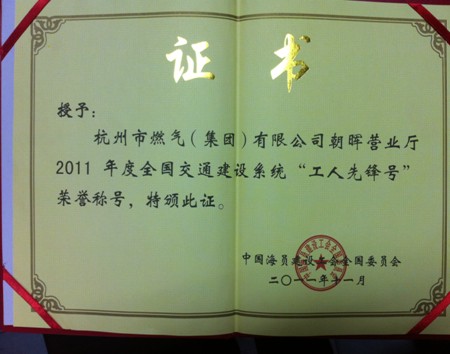 证 书
授予：
杭州市燃气（集团）有限公司朝晖营业厅
2011 年度全国交通建设系统“工人先锋号”
荣誉称号，特颁此证。
中国海员建设工会全国委员会
二〇一一年十一月